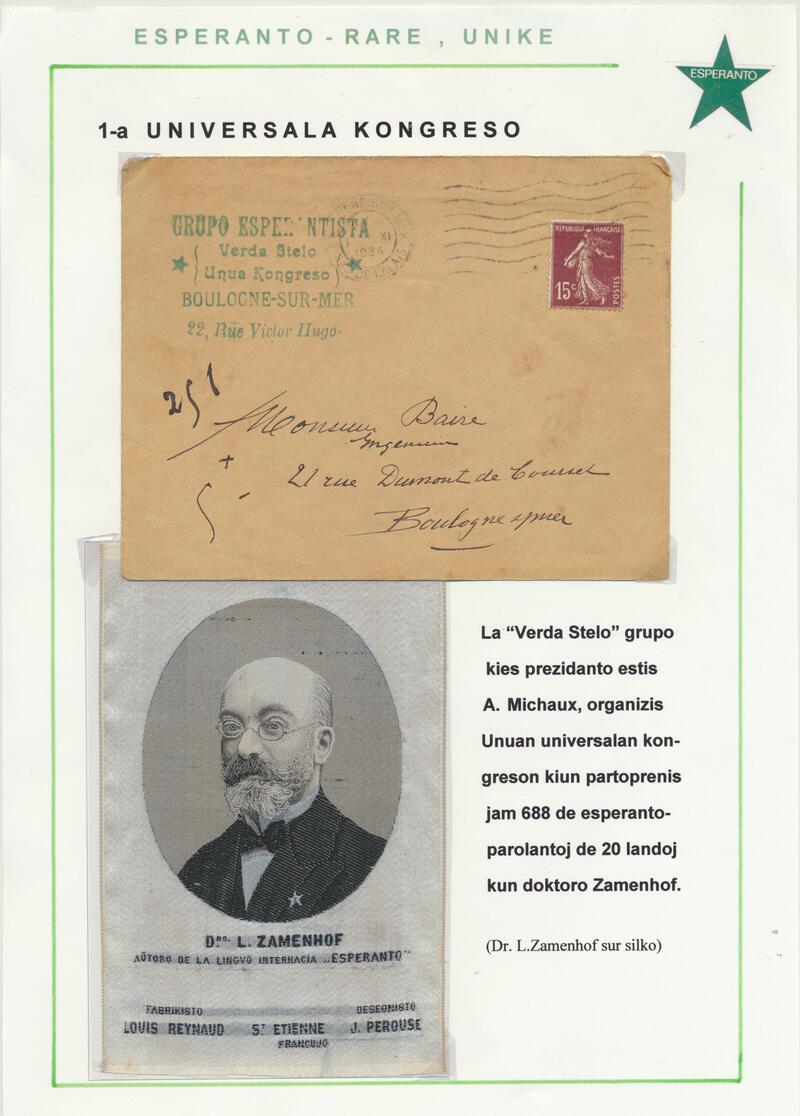 ESPERANTO - RARE , UNIKE
ESPERANTO
1-a UNIVERSALA KONGRESO
GRUPO ESPERANTISTA
Verda Stelo
Unua Kongreso
BOULOGNE-SUR-MER
22, Rue Victor Hugo.
XI
1934
REPUBLIQUE FRANÇAISE
15c
POSTES
251
Monsieur Baire
Ingenieur
21 rue Dumont de Courset
Boulogne s/mer
La “Verda Stelo” grupo
kies prezidanto estis
A. Michaux, organizis
Unuan universalan kon-
greson kiun partoprenis
jam 688 de esperanto-
parolantoj de 20 landoj
kun doktoro Zamenhof.
(Dr. L.Zamenhof sur silko)
Dro. L. ZAMENHOF
AŬTORO DE LA LINGVO INTERNACIA „ESPERANTO”
FABRIKISTO DESEGNISTO
LOUIS REYNAUD ST ETIENNE J. PEROUSE
FRANCUJO